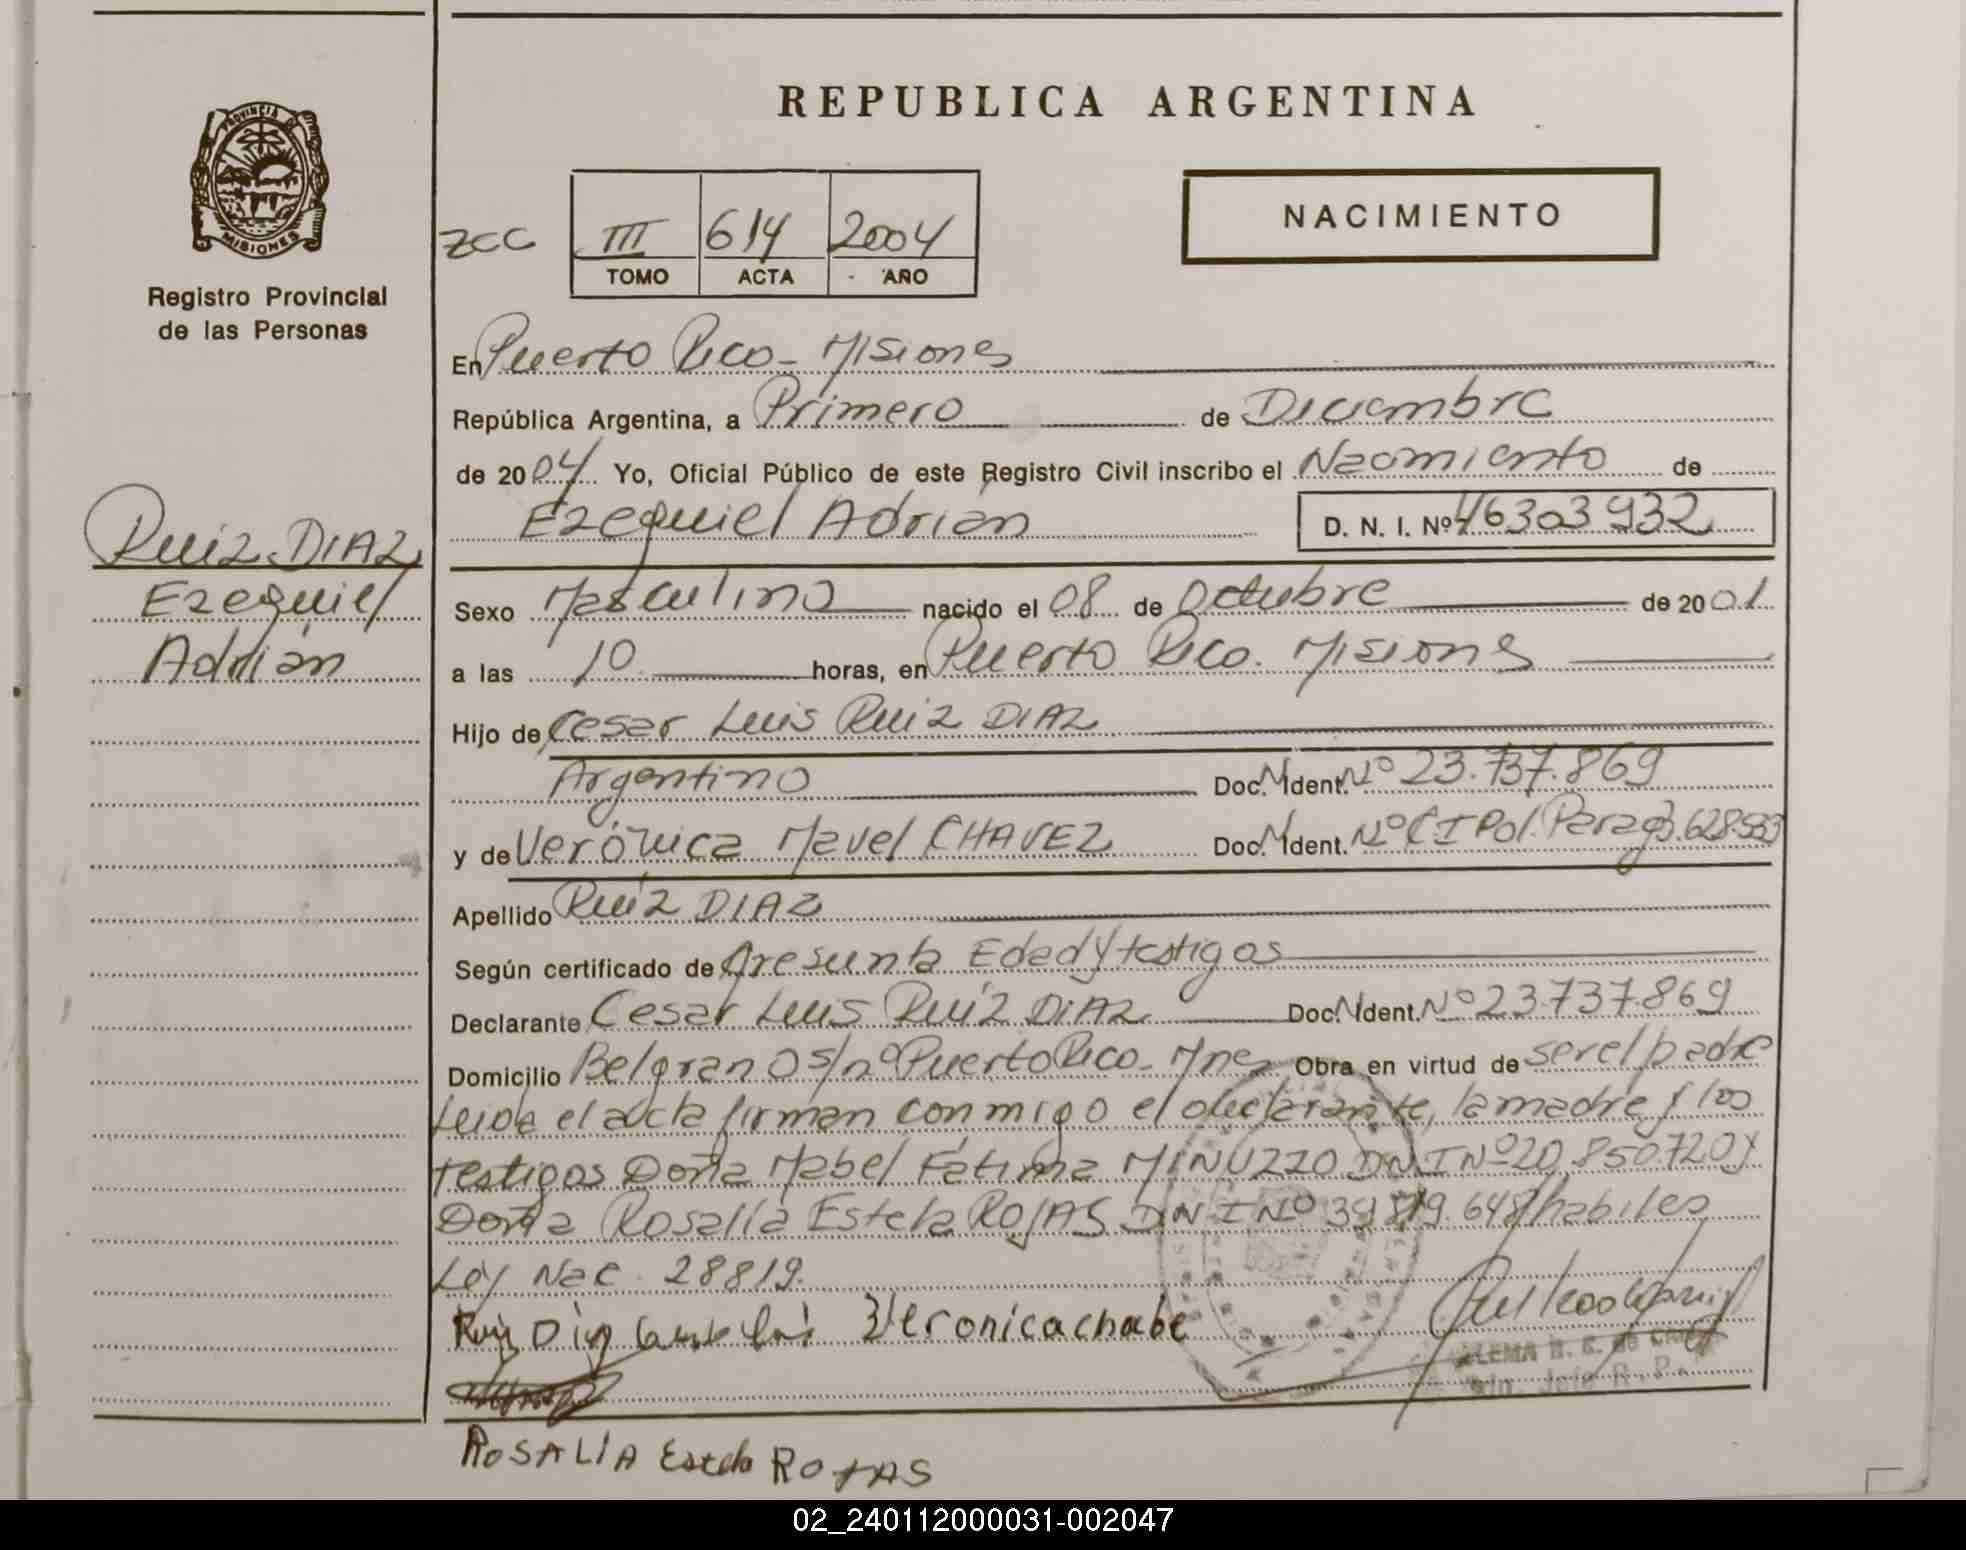 REPUBLICA ARGENTINA
PROVINCIA DE
MISIONES
Registro Provincial
de las Personas
ZCC III 614 2004
TOMO ACTA AÑO
NACIMIENTO
En Puerto Rico - Misiones
República Argentina, a Primero de Diciembre
de 2004 Yo, Oficial Público de este Registro Civil inscribo el Nacimiento de
Ezequiel Adrián D. N. I. Nº 46303932
Ruiz DIAZ
Ezequiel
Adrián
Sexo Masculino nacido el 08 de Octubre de 2001
a las 10 horas, en Puerto Rico. Misiones
Hijo de Cesar Luis Ruiz DIAZ
Argentino Doc. N. Ident. Nº 23.737.869
y de Verónica Mavel CHAVEZ Doc. N. Ident. Nº C I Pol. Parag
Apellido Ruíz DIAZ
Según certificado de Presunta Edad y testigos
Declarante Cesar Luis Ruíz DIAZ Doc. N. Ident. Nº 23.737.869
Domicilio Belgrano s/nº Puerto Rico - Mnes Obra en virtud de ser el padre
Leida el acta firman conmigo el declarante, la madre y los
testigos Doña Mabel Fátima MINUZZO DNI Nº 20.850.720 y
Doña Rosalía Estela ROJAS DNI Nº habiles
Ley Nac. 28819.
Ruiz Diaz Veronica chabe
ROSALIA Estela ROJAS
02_240112000031-002047